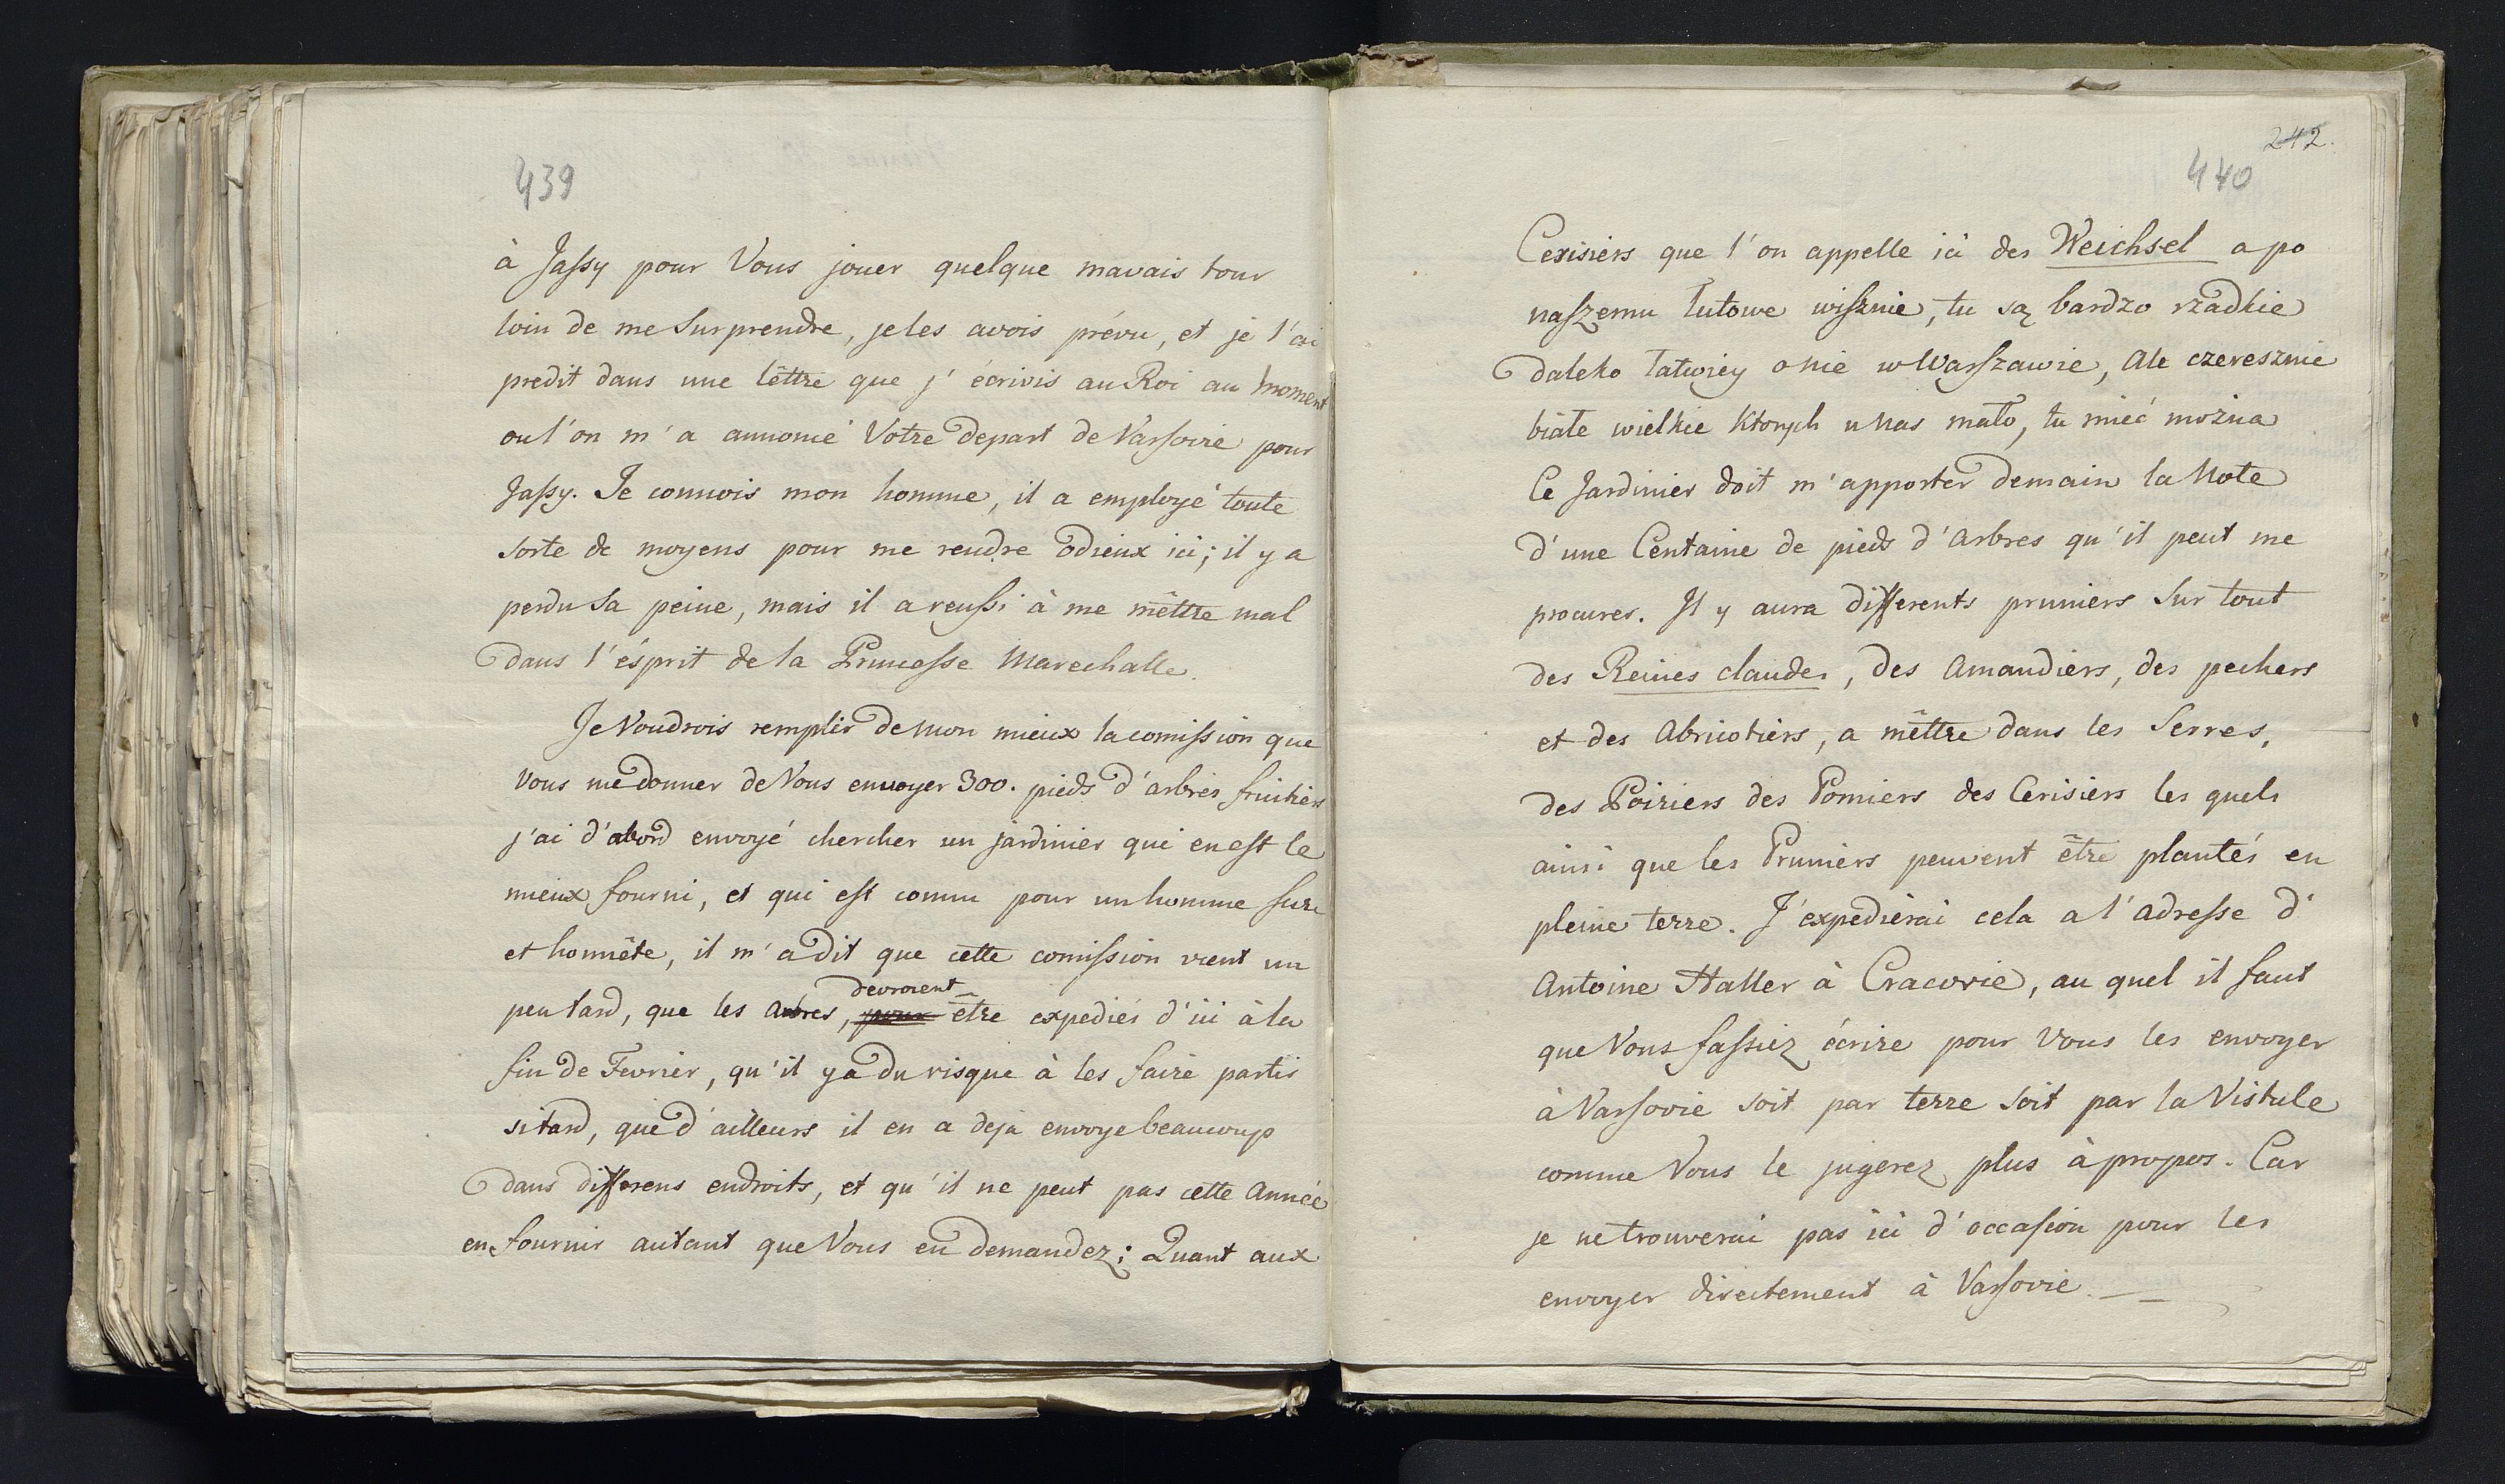 439
à Jassy pour Vous jouer quelque mavais tour
loin de me Surprendre, je les avois prévu, et je l'ai
predit dans une lêttre que j'écrivis au Roi au moment
ou l'on m'a annoncé Votre depart de Varsovie pour
Jassy. Je connois mon homme, il a employé toute
sorte de moyens pour me rendre odieux ici; il y a
perdu Sa peine, mais il a reussi à me mêttre mal
dans l'ésprit de la Princesse Marechalle.
Je Voudrois remplir de mon mieux la comission que
Vous me donner de Vous envoyer 300. pieds d'arbres fruitiers
j'ai d'abord envoyé chercher un jardinier qui en est le
mieux fourni, et qui est connu pour un homme sure
et honnête, il m'a dit que cette comission vient un
devroient
peu tard, que les arbres, pour être expediés d'ici à la
fin de Fevrier, qu'il y a du risque à les faire partir
si tard, que d'ailleurs il en a deja envoye beaucoup
dans differens endroits, et qu'il ne peut pas cette Année
en fournir autant que Vous en demandez; Quant aux
242.
440
Cerisiers que l'on appelle ici des Weichsel a po
naszemu lutowe wisznie, tu są bardzo rzadkie
daleko łatwiey o nie w Warszawie, Ale czeresznie
białe wielkie Ktorych u Nas mało, tu mieć można
Ce Jardinier doit m'apporter demain la Note
d'une Centaine de pieds d'arbres qu'il peut me
procurer. Il y aura differents pruniers Sur tout
des Reines claudes, des Amandiers, des pechers
et des Abricotiers, a mêttre dans les Serres,
des Poiriers des Pomiers des Cerisiers les quels
ainsi que les Pruniers peuvent être plantés en
pleine terre. J'expedierai cela a l'adresse d'
Antoine Haller à Cracovie, au quel il faut
que Vous fassiez écrire pour Vous les envoyer
à Varsovie soit par terre soit par la Vistule
comme Vous le jugerez plus à propos. Car
je ne trouverai pas ici d'occasion pour les
envoyer directement à Varsovie.